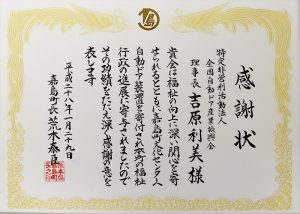 感謝状
特定非営利活動法人
全国自動ドア産業振興会
理事長 吉原利美様
貴会は福祉の向上に深い関心を寄
せられるとともに嘉島町文化センターへ
自動ドア装置を寄付され本町の福祉
行政の進展に寄与されましたので
その功績をたたえ深く感謝の意を
表します
平成二十八年一月二十九日
嘉島町長 荒木泰臣